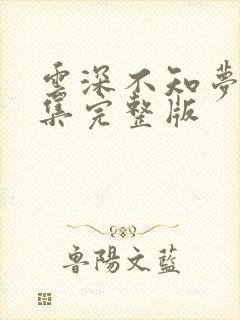 雲深不知夢
集完整版
魯陽文藍